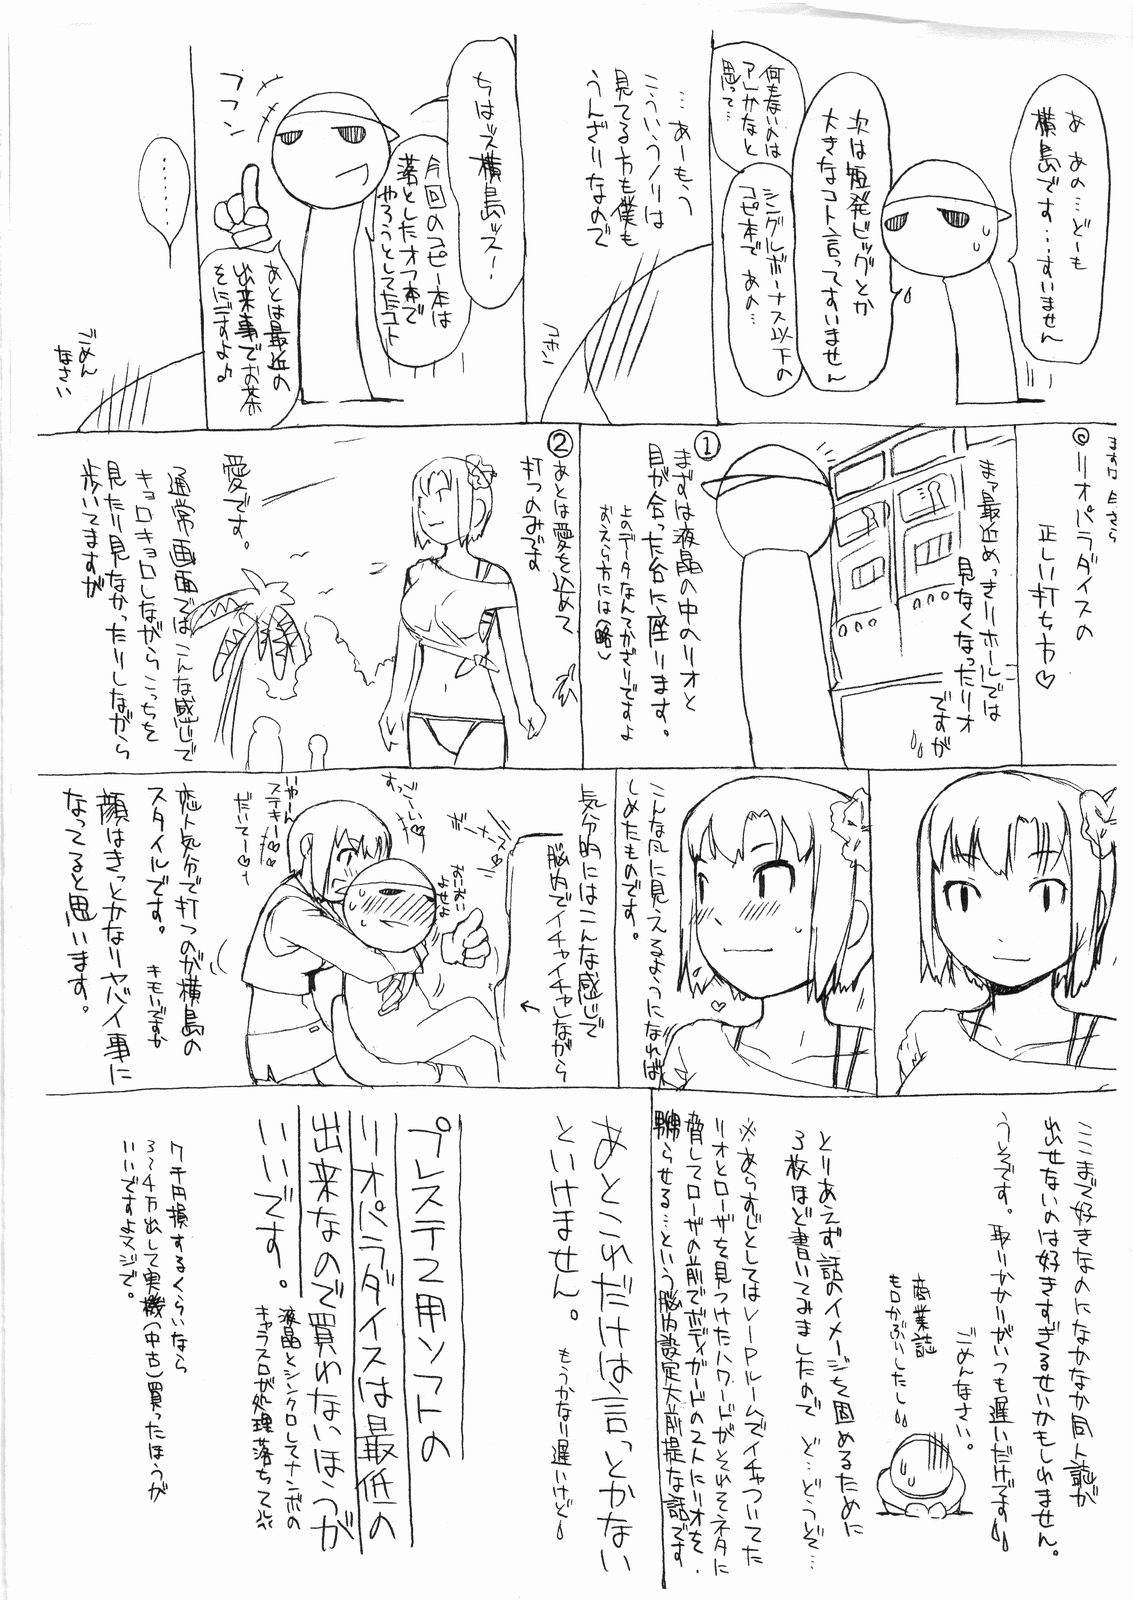 あ あの…どーも
横島です…すいません
次は短発ビッグとか
大きなコト言ってすいません
何もないのは
アレかなと
思って…
シングルボーナス以下の
コピ本で あの…
…あーもう
こういうノリは
見てる方も僕も
うんざりなので
コホン
ちはッス横島ッス!
今回のコピー本は
落としたオフ本で
やろうとしてたコト
フフン
あとは最近の
出来事でお茶
をにごすよ♪
………
ごめん
なさい
◎リオパラダイスの
正しい打ち方♡
まァ最近めっきりホールでは
見なくなったリオ
ですが
①
まずは液晶の中のリオと
目が合った台に座ります。
上のデータなんてかざりですよ
おえら方には(略)
②
あとは愛を込めて
打つのみです
愛です。
通常画面ではこんな感じで
キョロキョロしながらこっちを
見たり見なかったりしながら
歩いてますが
こんな風に見えるようになれば
しめたものです。
気分的にはこんな感じで
脳内でイチャイチャしながら
すっごーい♡
いやーん
ステキー♡
だいてー♡
恋人気分で打つのが横島の
スタイルです。
キモいですか
顔はきっとかなりヤバイ事に
なってると思います。
ここまで好きなのになかなか同人誌が
出せないのは好きすぎるせいかもしれません。
うそです。取りかかりがいつも遅いだけです
ごめんなさい。
商業誌
もロかぶりしたし
とりあえず話のイメージを固めるために
3枚ほど書いてみましたので ど…どうぞ…
※あらすじとしてはVIPルームでイチャついてた
リオとローザを見つけたハワードがそれをネタに
脅してローザの前でボディガードのストにリオを
嬲らせる…という脳内設定大前提な話です
あとこれだけは言っとかない
といけません。
もうかなり遅いけど
プレステ2用ソフトの
リオパラダイスは最低の
出来なので買わないほうが
いいです。
液晶とシンクロしてナンボの
キャラスロが処理落ちて
7千円損するくらいなら
3〜4万出して実機(中古)買ったほうが
いいですよマジで。